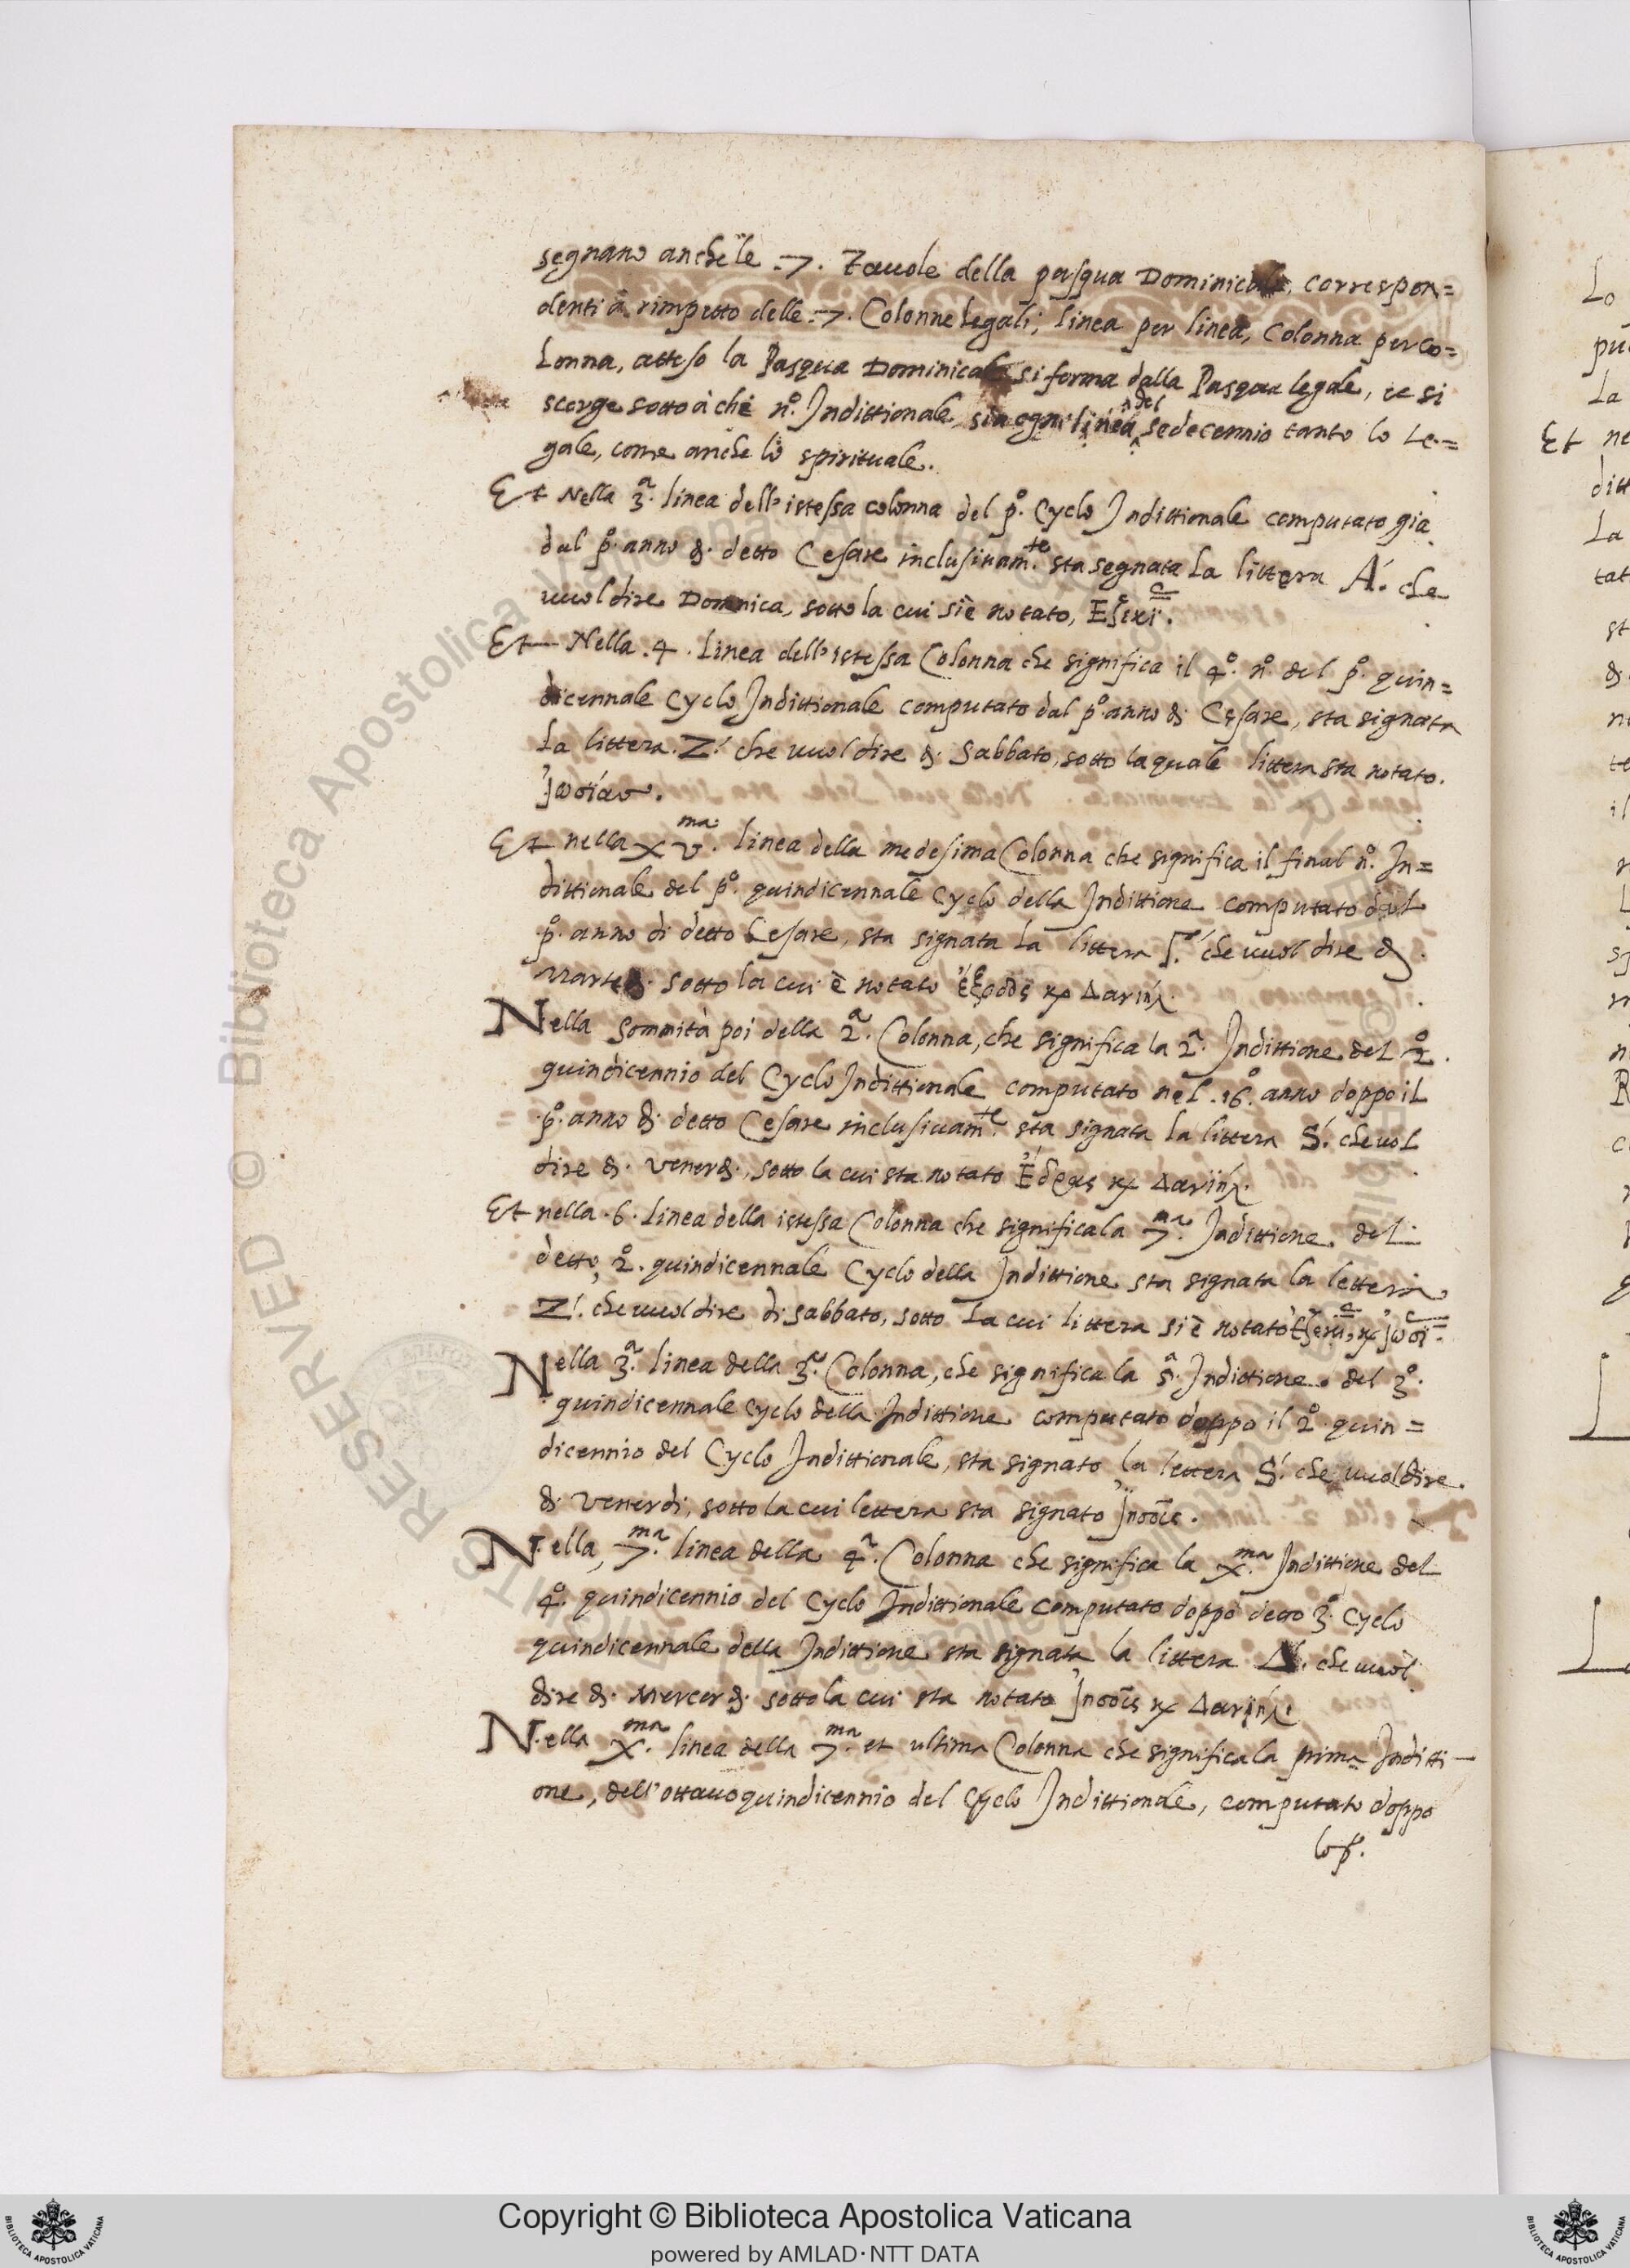 segnano anche le .7. Tauole della pasqua Dominicale, correspon=
denti à rimpetto delle .7. Colonne legali; linea per linea, Colonna per co=
lonna, atteso la Pasqua Dominicale si forma dalla Pasqua legale, et si
scorge sotto à che n.º Indittionale, sia ogni linea del sedecennio tanto lo Le=
gale, come anche lo spirituale.
Et Nella 3.ª linea dell'istessa colonna del p.º Cyclo Indittionale computato gia
dal p.º anno di detto Cesare inclusiuam.te sta segnata La littera A'. che
vuol dire Domenica, sotto la cui si è notato,
Et Nella .4. Linea dell'istessa Colonna che significa il 4.º n.º del p.º quin=
dicennale Cyclo Indittionale computato dal p.º anno di Cesare, sta signata
La littera .Z'. che vuol dire di Sabbato, sotto la quale littera sta notato.
Et nella XV.ma linea della medesima Colonna che significa il final n.º In=
dittionale del p.º quindicennale Cyclo della Indittione computato dal
p.º anno di detto Cesare, sta signata La littera Γ'. che vuol dire di
Martedi. sotto la cui è notato
Nella Sommità poi della 2.ª Colonna, che significa la 2.ª Indittione del 2.º
quindicennio del Cyclo Indittionale computato nel .16.º anno doppo il
p.º anno di detto Cesare inclusiuam.te sta signata la littera S'. che vol
dire di Venerdi, sotto la cui sta notato
Et nella .6. Linea della istessa Colonna che significa la 7.ma Indittione del
detto 2.º quindicennale Cyclo della Indittione sta signata la lettera
Z'. che vuol dire di sabbato, sotto La cui littera si è notato
Nella 3.ª linea della 3.ª Colonna, che significa la 5.ª Indittione del 3.º
quindicennale Cyclo della Indittione computato doppo il 2.º quin=
dicennio del Cyclo Indittionale, sta signato la lettera S'. che vuol dire
di Venerdi, sotto la cui lettera sta signato
Nella, 7.ma linea della 4.ª Colonna che significa la X.ma Indittione del
4.º quindicennio del Cyclo Indittionale computato doppo detto 3.º Cyclo
quindicennale della Indittione sta signata la littera Δ'. che vuol
dire di Mercordi. sotto la cui sta notato
Nella X.ma linea della 7.ma et ultima Colonna che significa la prima Inditti-
one, dell'ottauo quindicennio del Cyclo Indittionale, computato doppo
lo p.º
RISERVED © Biblioteca Apostolica Vaticana
Copyright © Biblioteca Apostolica Vaticana
powered by AMLAD·NTT DATA